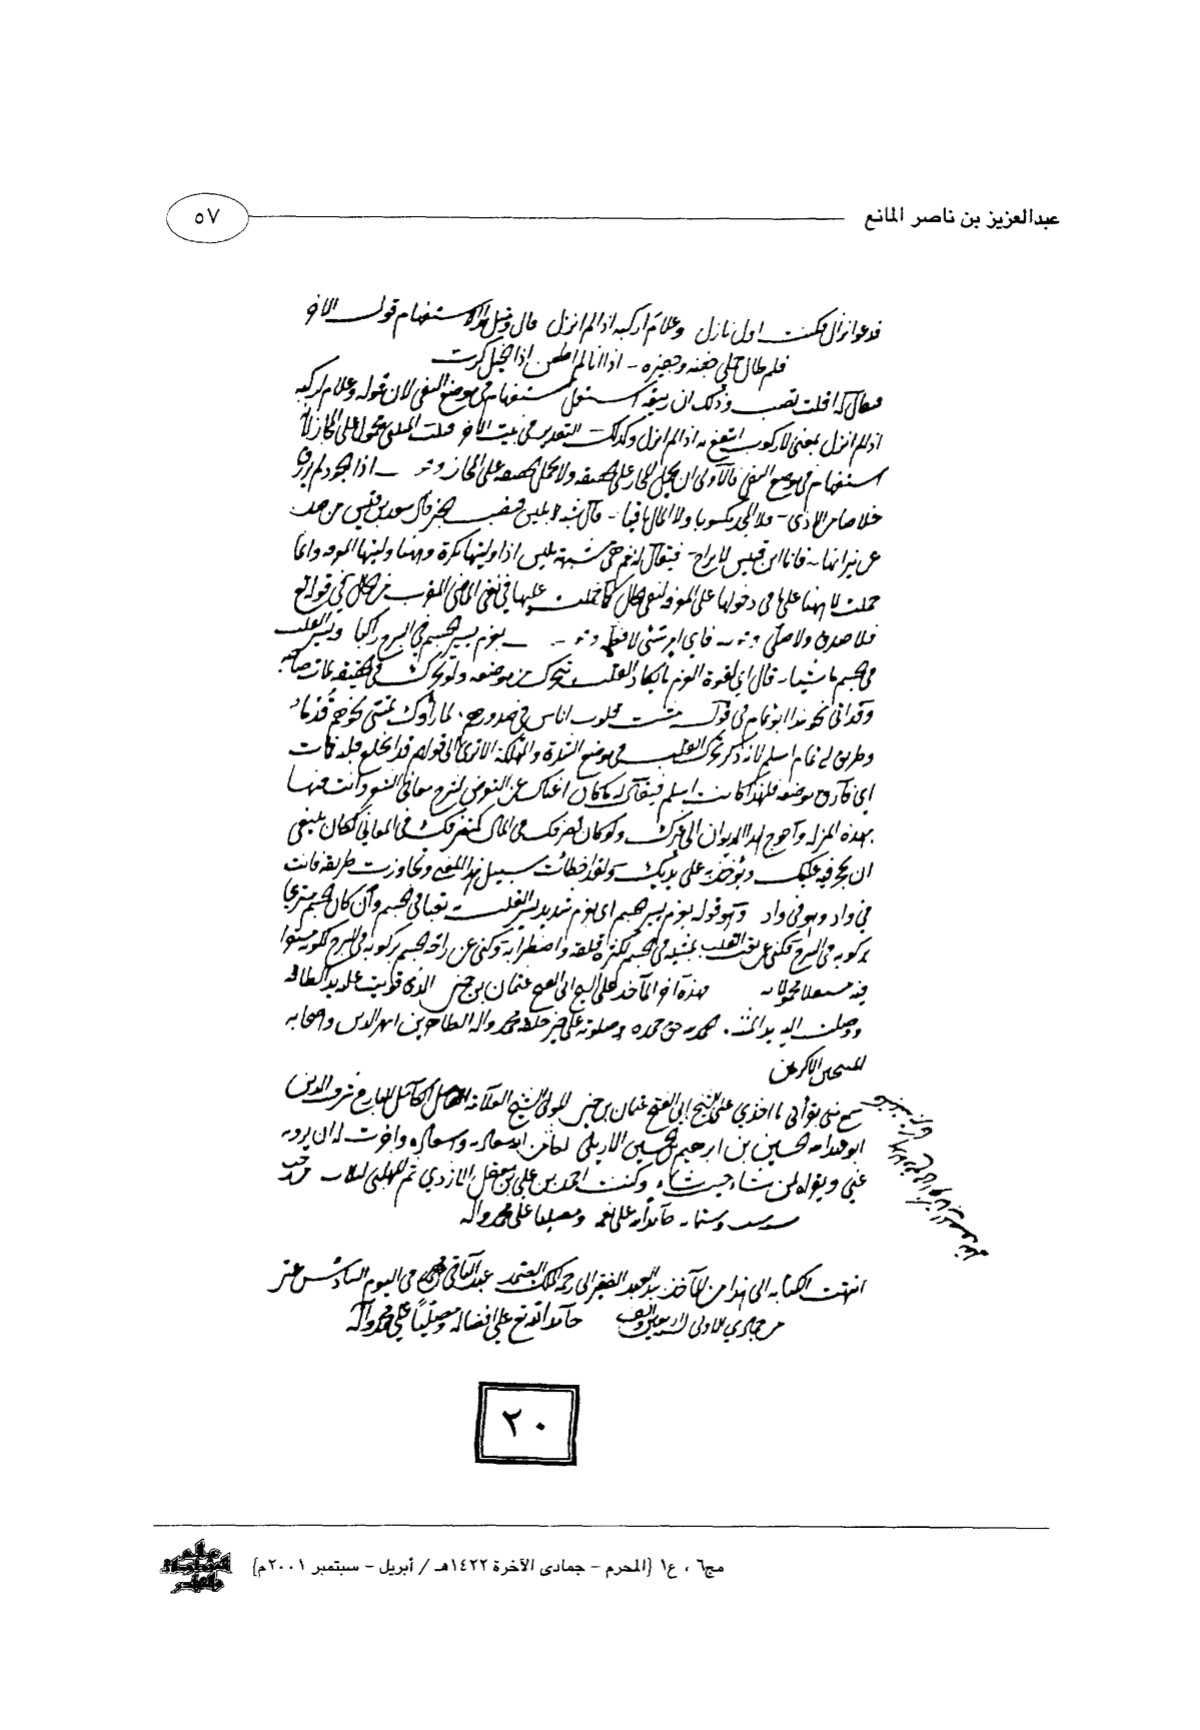 عبدالعزيز بن ناصر المانع
٥٧
فدعوا نزال فكنت اول نازل وعلام اركبه اذا لم انزل قال ومثل هذا الاستفهام قول الاخر
فلم طال حملي جفنه وجفيره - اذا انا لم اطعن اذا الخيل كرت
فيقال له اقلت تعصب وذلك ان ربيعة استعمل الاستفهام في موضع النفي لان قوله وعلام اركبه
اذا لم انزل بمعنى لا ركوب انتفع به اذا لم انزل وكذلك التقدير في بيت الاخر قلت المتنبي محمول على المجاز لان
استفهام في موضع النفي فالاولى ان يحمل المجاز على الحقيقة ولا تحمل الحقيقة على المجاز وقوله - اذا الجود لم يرزق
خلاصا من الاذى - فلا الحمد مكسوبا ولا المال باقيا - قال شبه لا بليس فنصب الخبر قال سعد بن قيس من صد
عن نيرانها - فانا ابن قيس لا براح - فيقال له نعم حتى شبهة بليس اذا وليتها نكرة وههنا وليتها المعرفة وانما
حملت لا ههنا على ما في دخولها على المعرفة لنفي الحال كما حملت عليها في نفي الماضي المقرب من الحال في قوله تع
فلا صدق ولا صلى وقوله - فاي امر سيئ لا فعله وقوله - بعزم يسير الجسم في السرج راكبا ويسير القلب
في الجسم ماشيا - قال اي لقوة العزم ما يكاد القلب يتحرك من موضعه ولو تحرك في الحقيقة لمات صاحبه
وقد اتى نحو هذا ابو تمام في قوله مشت قلوب اناس في صدورهم - لما راوك تمشي نحوهم قدما
وطريق ابي تمام اسلم لانه ذكر تحرك القلب في موضع الشدة والهلكة الا ترى الى قولهم قد انخلع قلبه فمات
اي فارق موضعه فلهذا كانت اسلم فيقال له ما كان اغناك عن التعرض لشرح معاني الشعر وانت منها
بهذه المنزلة واحوج هذا الديوان الى غيرك ولو كان تصرفك في المال كتصرفك في المعاني لكان ينبغي
ان يحجر فيه عليك ويؤخذ به على يديك ولقد اخطأت سبيل هذا المعنى وتجاوزت طريقه فانت
في واد وهو في واد وهو قوله بعزم يسير الجسم اي بعزم شديد يسير القلب تعبا في الجسم وان كان الجسم مستريحا
بركوبه في السرج فكنى عن تعب القلب بمشيه في الجسم لكثرة قلقه واضطرابه وكنى عن راحة الجسم بركوبه في السرج لكونه مستويا
فيه مستعليا محمولا به وهذه اخر المآخذ على الشيخ ابي الفتح عثمان بن جني الذي قويت عليه يد الطاقة
ووصلت اليه يد المنة. الحمد لله حق حمده وصلوته على خير خلقه محمد واله الطاهرين اهل الدين واصحابه
المنتجبين الاكرمين
سمع مني بقرأتي مآخذي على الشيخ ابي الفتح عثمان بن جني المولى الشيخ العلامة الفاضل الكامل البارع شرف الدين
ابو عبد الله الحسين بن ابرهيم بن الحسين الاربلي ادام الله سعادته واجزت له ان يرويه
عني ويقرئه لمن شاء حيث شاء وكتب احمد بن علي بن معقل الازدي ثم المهلبي لثلاث من رجب
سنة وستمائة حامدا لله على نعمه ومصليا على محمد واله
انتهت الكتابة الى هذا من المآخذ بيد العبد الفقير الى رحمة الملك عبد الباقي في اليوم السادس عشر
من جمادي الاولى لسنة والف حامدا لله تع على افضاله ومصليا على محمد واله
٢٠
مج٦ ، ع١ (المحرم - جمادى الآخرة ١٤٢٢هـ / أبريل - سبتمبر ٢٠٠١م)